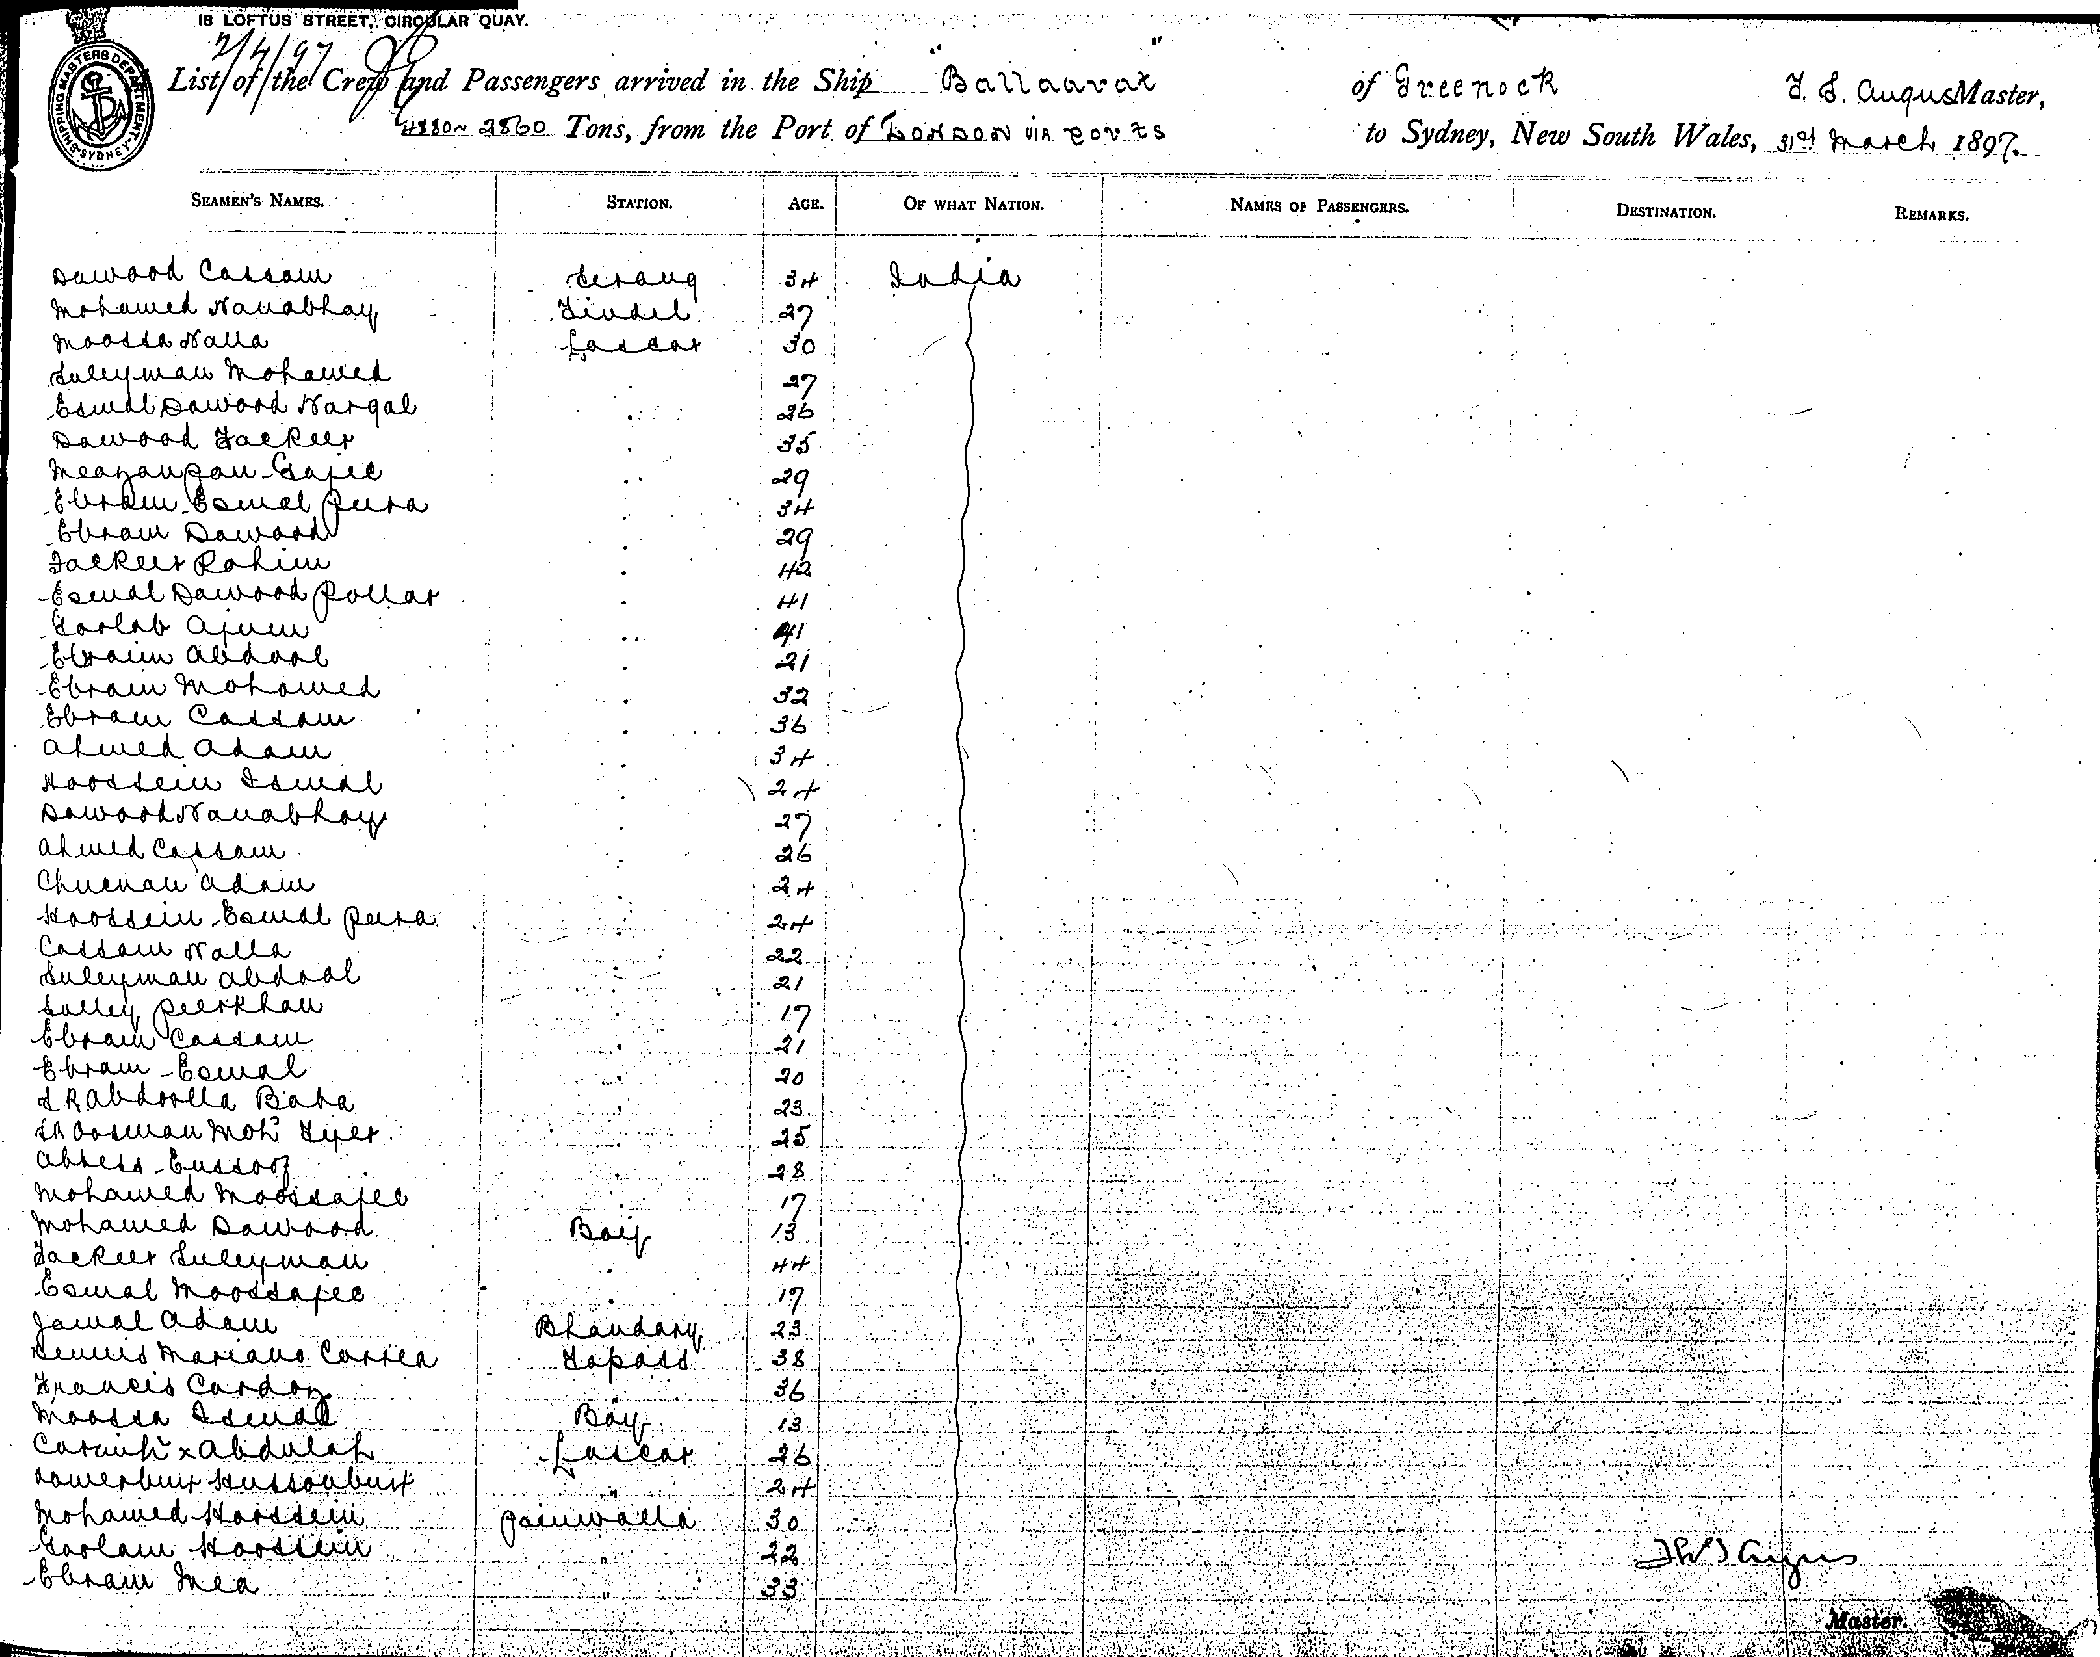 18 LOFTUS STREET, CIRCULAR QUAY.
2/4/97
SHIPPING MASTERS DEPARTMENT SYDNEY
List of the Crew and Passengers arrived in the Ship "Ballaarat" of Greenock F. S. Angus Master,
2860 Tons, from the Port of London via ports to Sydney, New South Wales, 31st March 1897.
SEAMEN'S NAMES. STATION. AGE. OF WHAT NATION. NAMES OF PASSENGERS. DESTINATION. REMARKS.
Dawood Cassam Serang 34 India
Mohamed Nanabhay Tindel 27
Moossa Nalla Lascar 30
Suleyman Mohamed 27
Esmal Dawood Nargal 26
Dawood Fackeer 35
29
Ebram Esmal Peera 34
Ebram Dawood 29
Fackeer Rahim 42
Esmal Dawood Pollar 41
Goolab Ajum 41
Ebraim Abdool 21
Ebram Mohamed 32
Ebram Cassam 36
Ahmed Adam 34
Hoossein Esmal 24
Dawood Nanabhay 27
Ahmed Cassam 26
Chuenau Adam 24
Hoossein Esmal Peera 24
Cassam Nalla 22
Suleyman Abdool 21
Salley Peerkhan 17
Ebram Cassam 21
Ebram Esmal 20
S R Abdoolla Baba 23
Oosman Moh^d 25
Abbess Eussoof 28
Mohamed Moossajee 17
Mohamed Dawood Boy 13
Fackeer Suleyman " 44
Esmal Moossajee " 17
Jamal Adam Bhandary 23
Mariano Correa Topass 38
Francis Cardoz " 36
Moossa Esmal Boy 13
x Abdulah Lascar 26
Hussonbux " 24
Mohamed Hoossein Painwalla 30
Goolam Hoossein " 22
Ebram Mea " 33
Angus
Master.